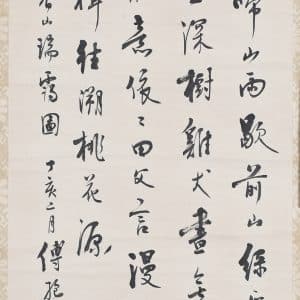 啼山雨歇前山綠
深樹雞犬
意依〻田父言漫
往溯桃花源
山瑞靄圖 丁亥二月 傅